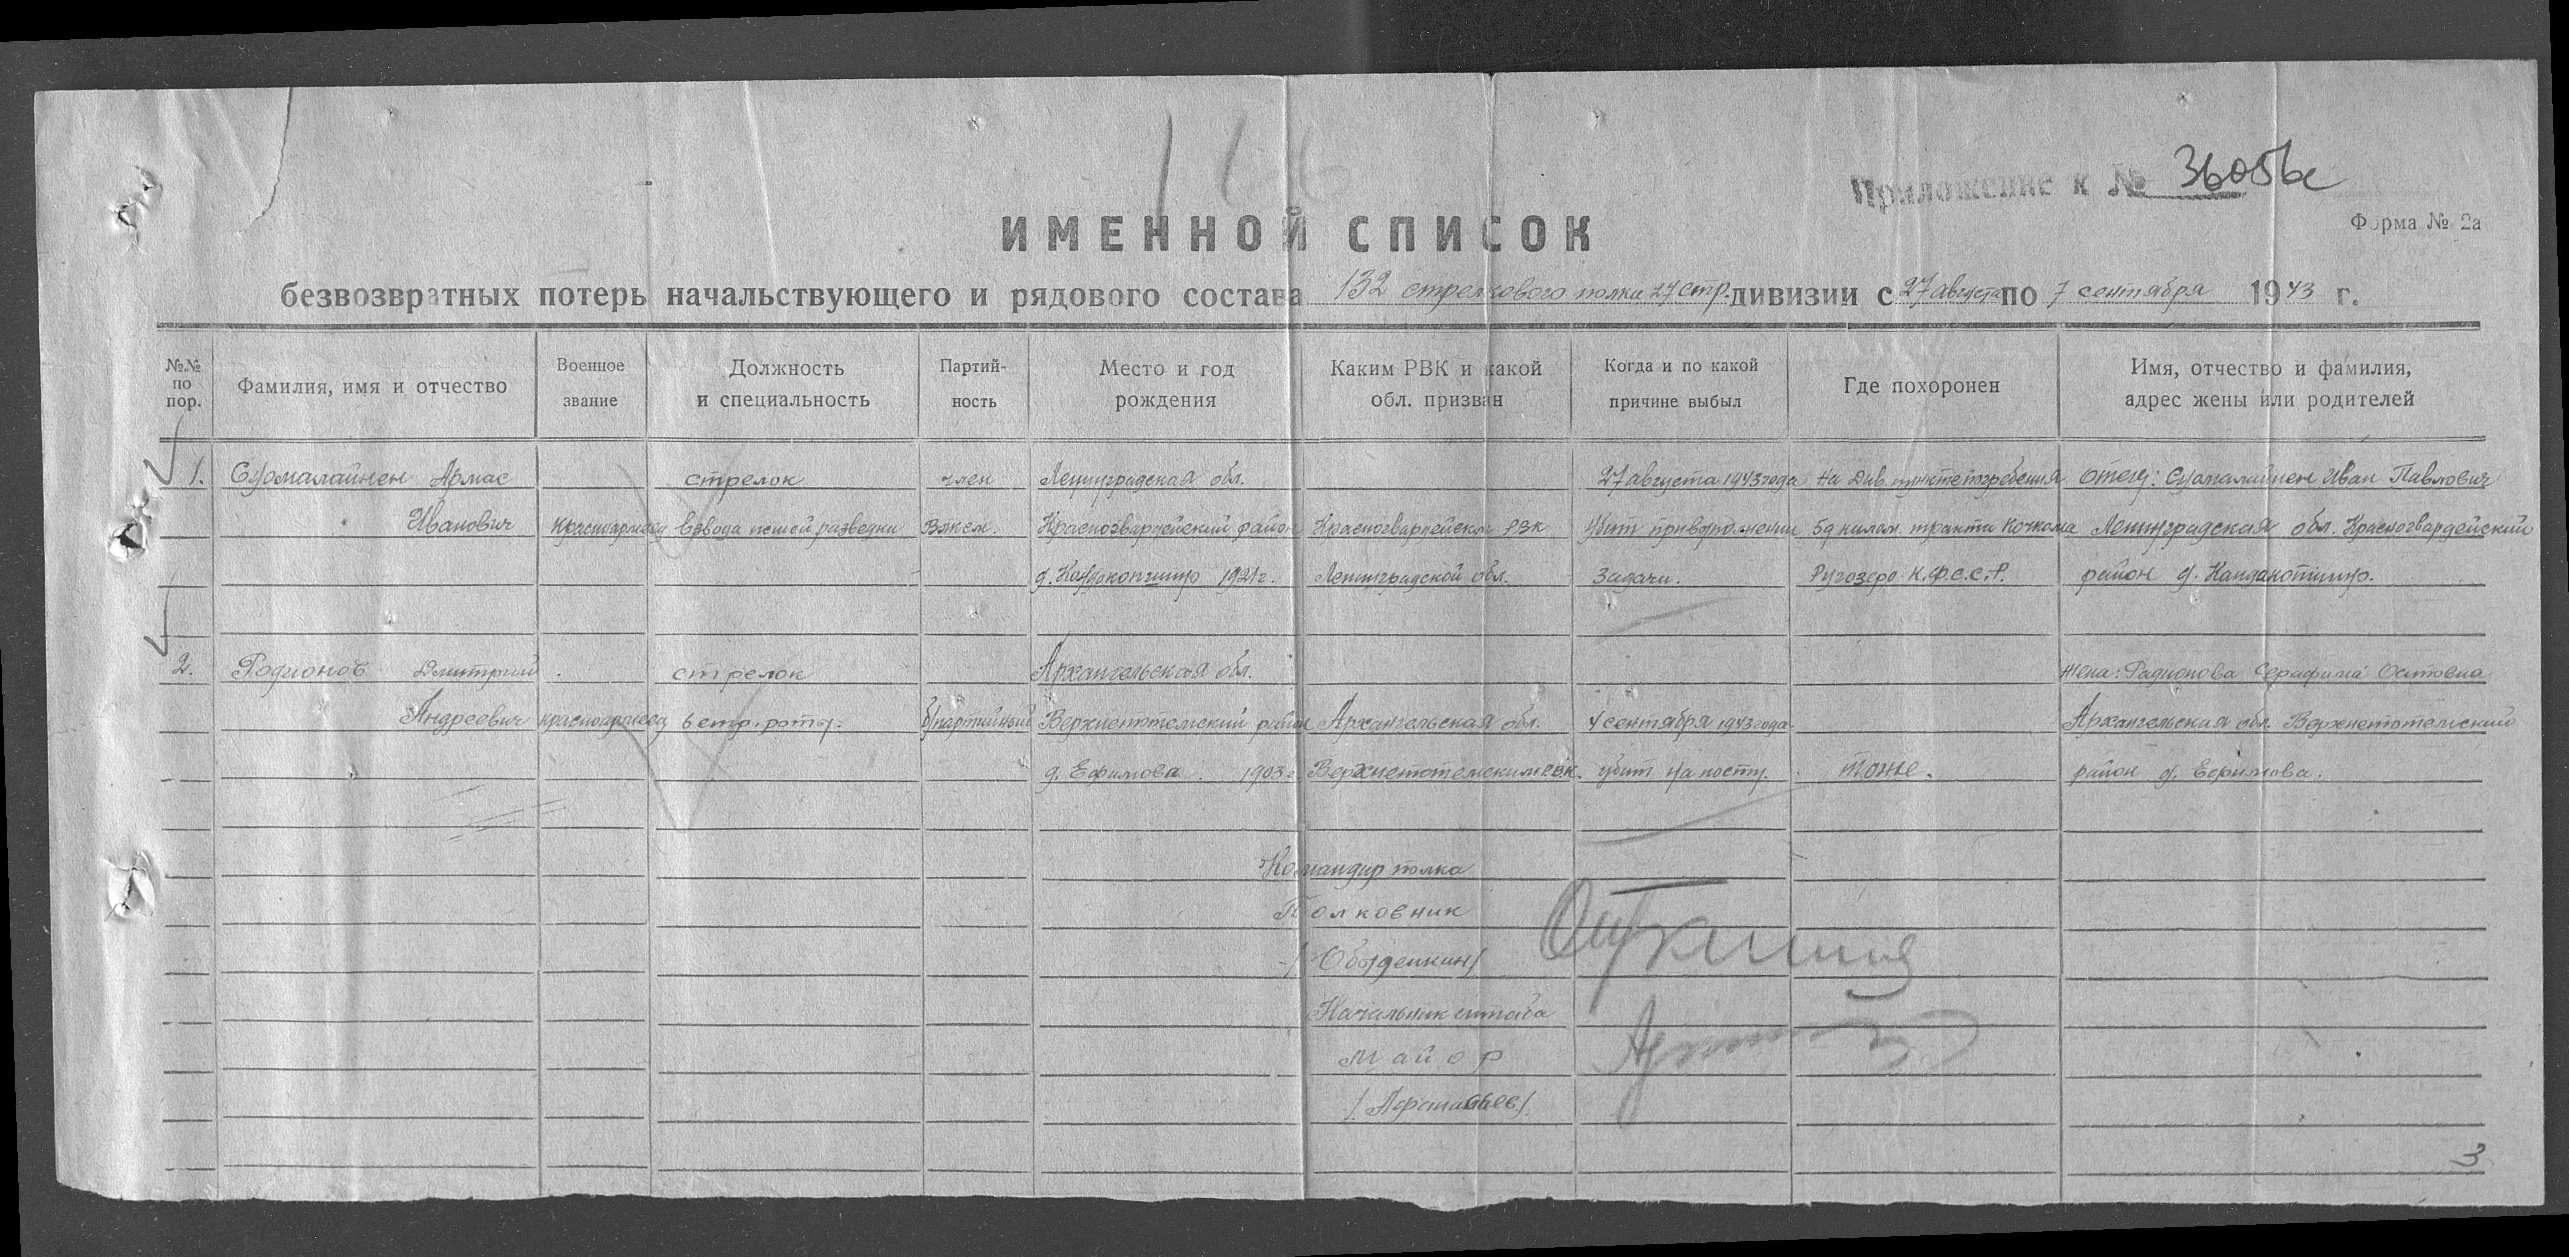 Приложение к № 36056с
Форма № 2а
ИМЕННОЙ СПИСОК
безвозвратных потерь начальствующего и рядового состава 132 стрелкового полка 27 стр. дивизии с 27 августа по 7 сентября 1943 г.
№№ по пор.
Фамилия, имя и отчество
Военное звание
Должность и специальность
Партий-ность
Место и год рождения
Каким РВК и какой обл. призван
Когда и по какой причине выбыл
Где похоронен
Имя, отчество и фамилия, адрес жены или родителей
1. Суомалайнен Армас стрелок член Ленинградская обл. 27 августа 1943 года На Див. пункте погребения отец: Суомалайнен Иван Павлович
Иванович красноармеец взвода пешей разведки ВЛКСМ. Красногвардейский район Красногвардейским РВК Убит при выполнении 59 килом. тракта Кочкома Ленинградская обл. Красногвардейский
1921 г. Ленинградской обл. задачи. Ругозеро К.Ф.С.С.Р. район д.
2. Родионов Дмитрий стрелок Архангельская обл. жена: Радионова Серафима
Андреевич красноармеец 6 стр. роты. б/партийный Верхнетоемский район Архангельская обл. 4 сентября 1943 года Архангельская обл. Верхнетоемский
д. Ефимова 1903 г. Верхнетоемским РВК. убит на посту. тоже. район д. Ефимова.
Командир полка
Полковник
/Обыденкин/
Начальник штаба
Майор
/Арстафьев/
3